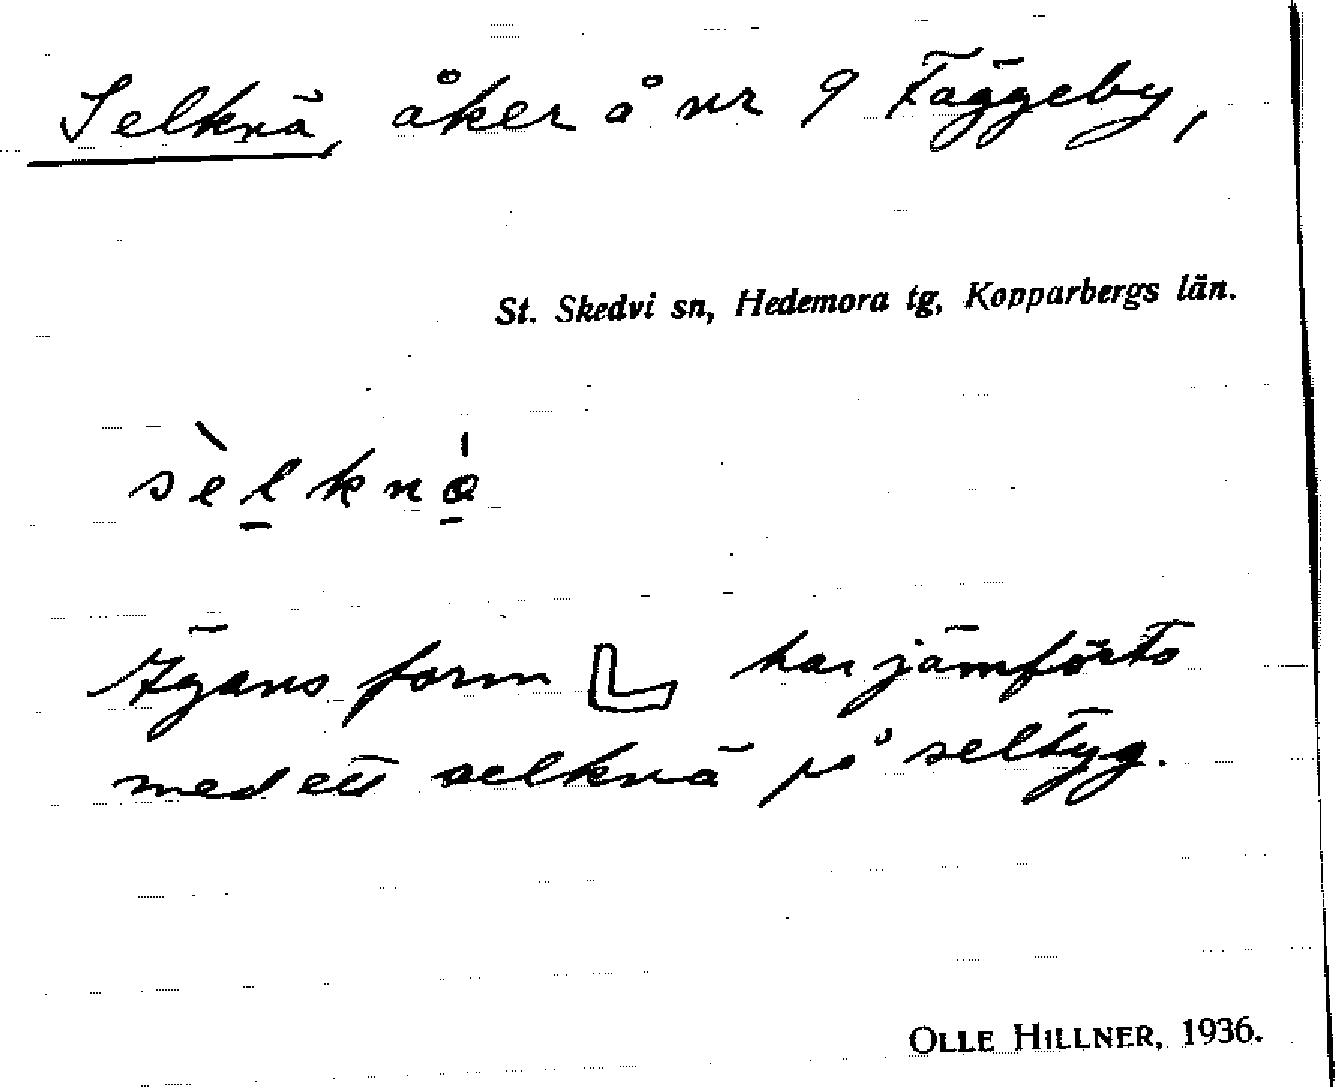 Selknä, åker å nr 9 Fäggeby,
St. Skedvi sn, Hedemora tg, Kopparbergs län.
sèlknä
Ägans form har jämförts
med ett selknä på seltyg.
OLLE HILLNER, 1936.